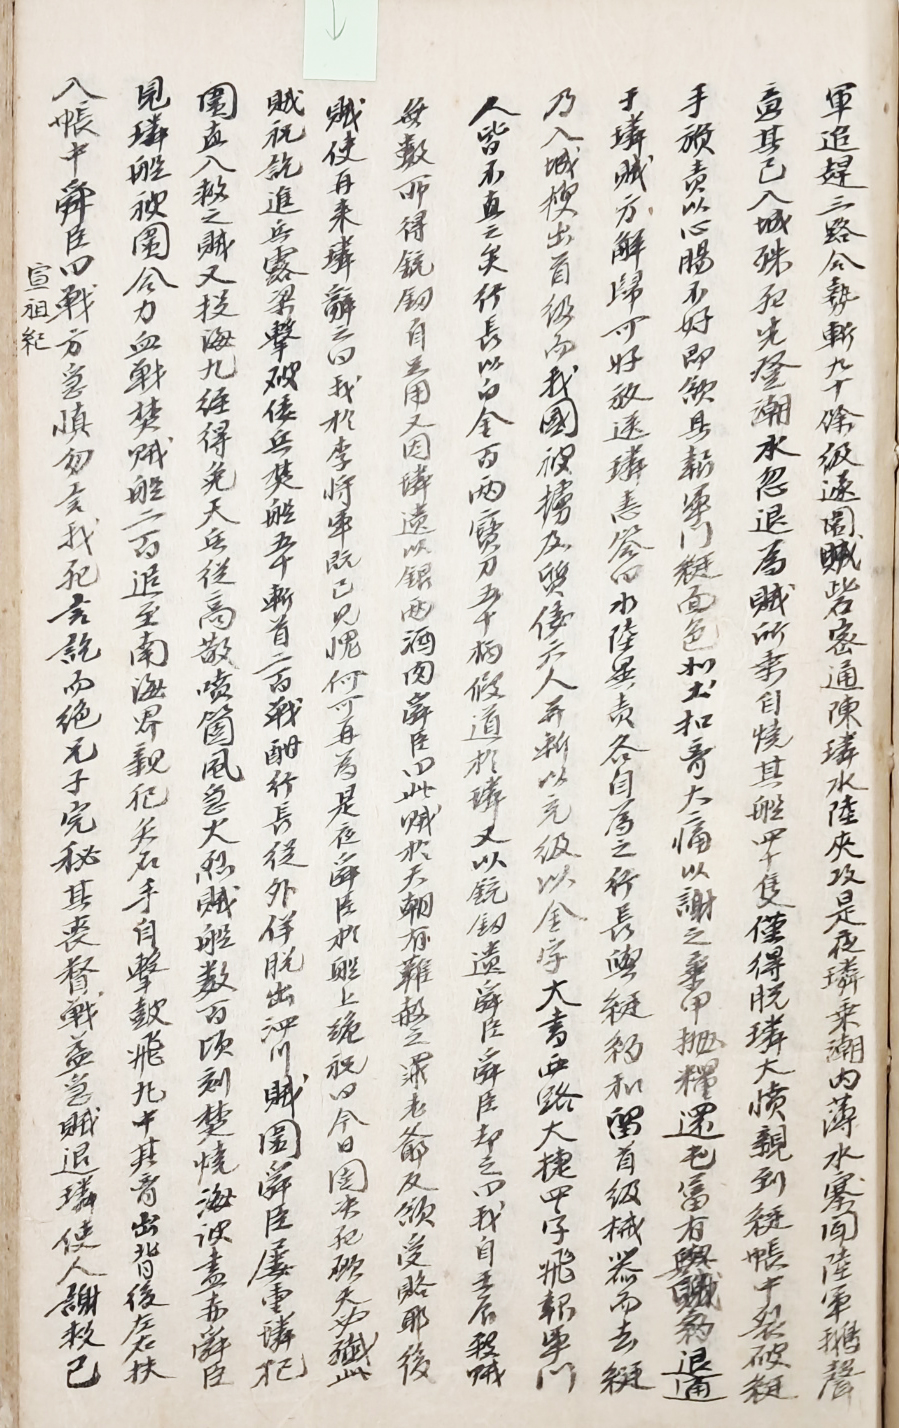 軍追趕三路合勢斬九十餘級遂圍賊砦密通陳璘水陸夾攻是夜璘乘潮內薄水寨聞陸軍撕聲
意其已入城殊死先登潮水忽退爲賊所乘自燒其船四十隻僅得脫璘大憤親到綎帳中裂破綎
手旗責以心腸不好卽欲具報軍門綎面色如土扣膺大慟以謝之棄甲抛糧還屯富有與賊約退通
于璘賊方解歸可好放送璘恚答曰水陸異責各自爲之行長與綎約和留首級械器而去綎
乃入城搜出首級而我國被擄及與倭六人并斬以充級以金字大書西路大捷四字飛報軍門
人皆不直之矣行長以白金百兩寶刀五十柄假道於璘又以銃釖遺舜臣舜臣却之曰我自壬辰殺賊
無數所得銃釖自足用又因璘遺以銀兩酒肉舜臣曰此賊於天朝有難赦之罪老爺反欲受賂耶後
賊使再來璘辭之曰我於李將軍旣已見愧何可再爲是夜舜臣於船上跪祝曰今日固决死願天必殲此
賊祝訖進兵露梁擊破倭兵焚船五十斬首二百戰酣行長從外佯脫出泗川賊圍舜臣屢重璘犯
圍直入救之賊又投海九經得免天兵從高敵噴筒風急火烈賊船數百頃刻焚燒海波盡赤舜臣
見璘船被圍合力血戰焚賊船二百追至南海界親犯矢石手自擊鼓飛丸中其膺出背後左右扶
入帳中舜臣曰戰方急愼勿言我死言訖而絶兄子完秘其喪督戰益急賊退璘使人謝救已
宣祖紀